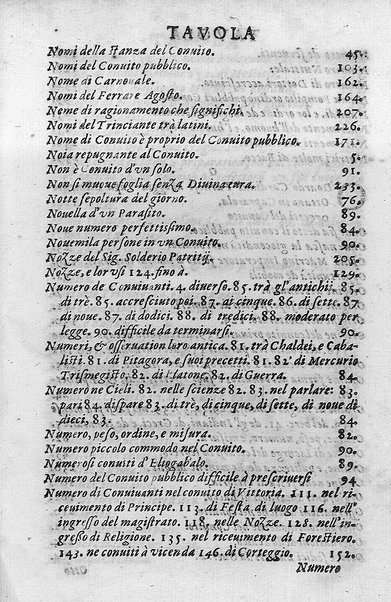 TAVOLA
Nomi della stanza del Conuito. 45.
Nomi del Conuito publico. 103.
Nome di Carneuale. 162.
Nomi del Ferrare Agosto. 164.
Nome di ragionamento che significhi. 207.
Nomi del Trinciante trà latini. 226.
Nome di Conuito è proprio del Conuito publico. 171.
Noia repugnante al Conuito. 5.
Non è Conuito d'vn solo. 91.
Non si muoue foglia senza Diuinatura. 233.
Notte sepoltura del giorno. 76.
Nouella d'vn Parasito. 89.
Noue numero perfettissimo. 84.
Nouemila persone in vn Conuito. 90.
Nozze del Sig. Solderio Patritij. 205.
Nozze, e lor vsi 124. fino à. 129.
Numero de Conuiuanti. 4. diuerso. 85. trà gl'antichi. 85.
di trè. 85. accresciuto poi. 87. di cinque. 86. di sette. 87.
di noue. 87. di dodici. 88. di tredici. 88. moderato per
legge. 90. difficile da terminarsi. 90.
Numeri, & osseruation loro antica. 81. trà Chaldei, e Caba-
listi. 81. di Pitagora, e suoi precetti. 81. 82. di Mercurio
Trismegisto, 82. di Platone. 82. di Guerra. 84.
Numero ne Cieli. 82. nelle scienze 82. 83. nel parlare: 83.
pari 84. dispare 83. di trè, di cinque, di sette, di noue di
dieci, 83. 84.
Numero, peso, ordine, e misura. 82.
Numero piccolo commodo nel Conuito. 90.
Numerosi conuiti d'Eliogabalo. 89.
Numero del Conuito publico difficile à prescriuersi 94
Numero di Conuiuanti nel conuito di Vittoria. 111. nel ri-
ceuimento di Principe. 113. di Festa di luogo 116. nell'
ingresso del magistrato. 118. nelle Nozze. 128. nell'in-
gresso di Religione. 135. nel riceuimento di Forestiero.
143. ne conuiti à vicenda 146. di Corteggio. 152.
Numero